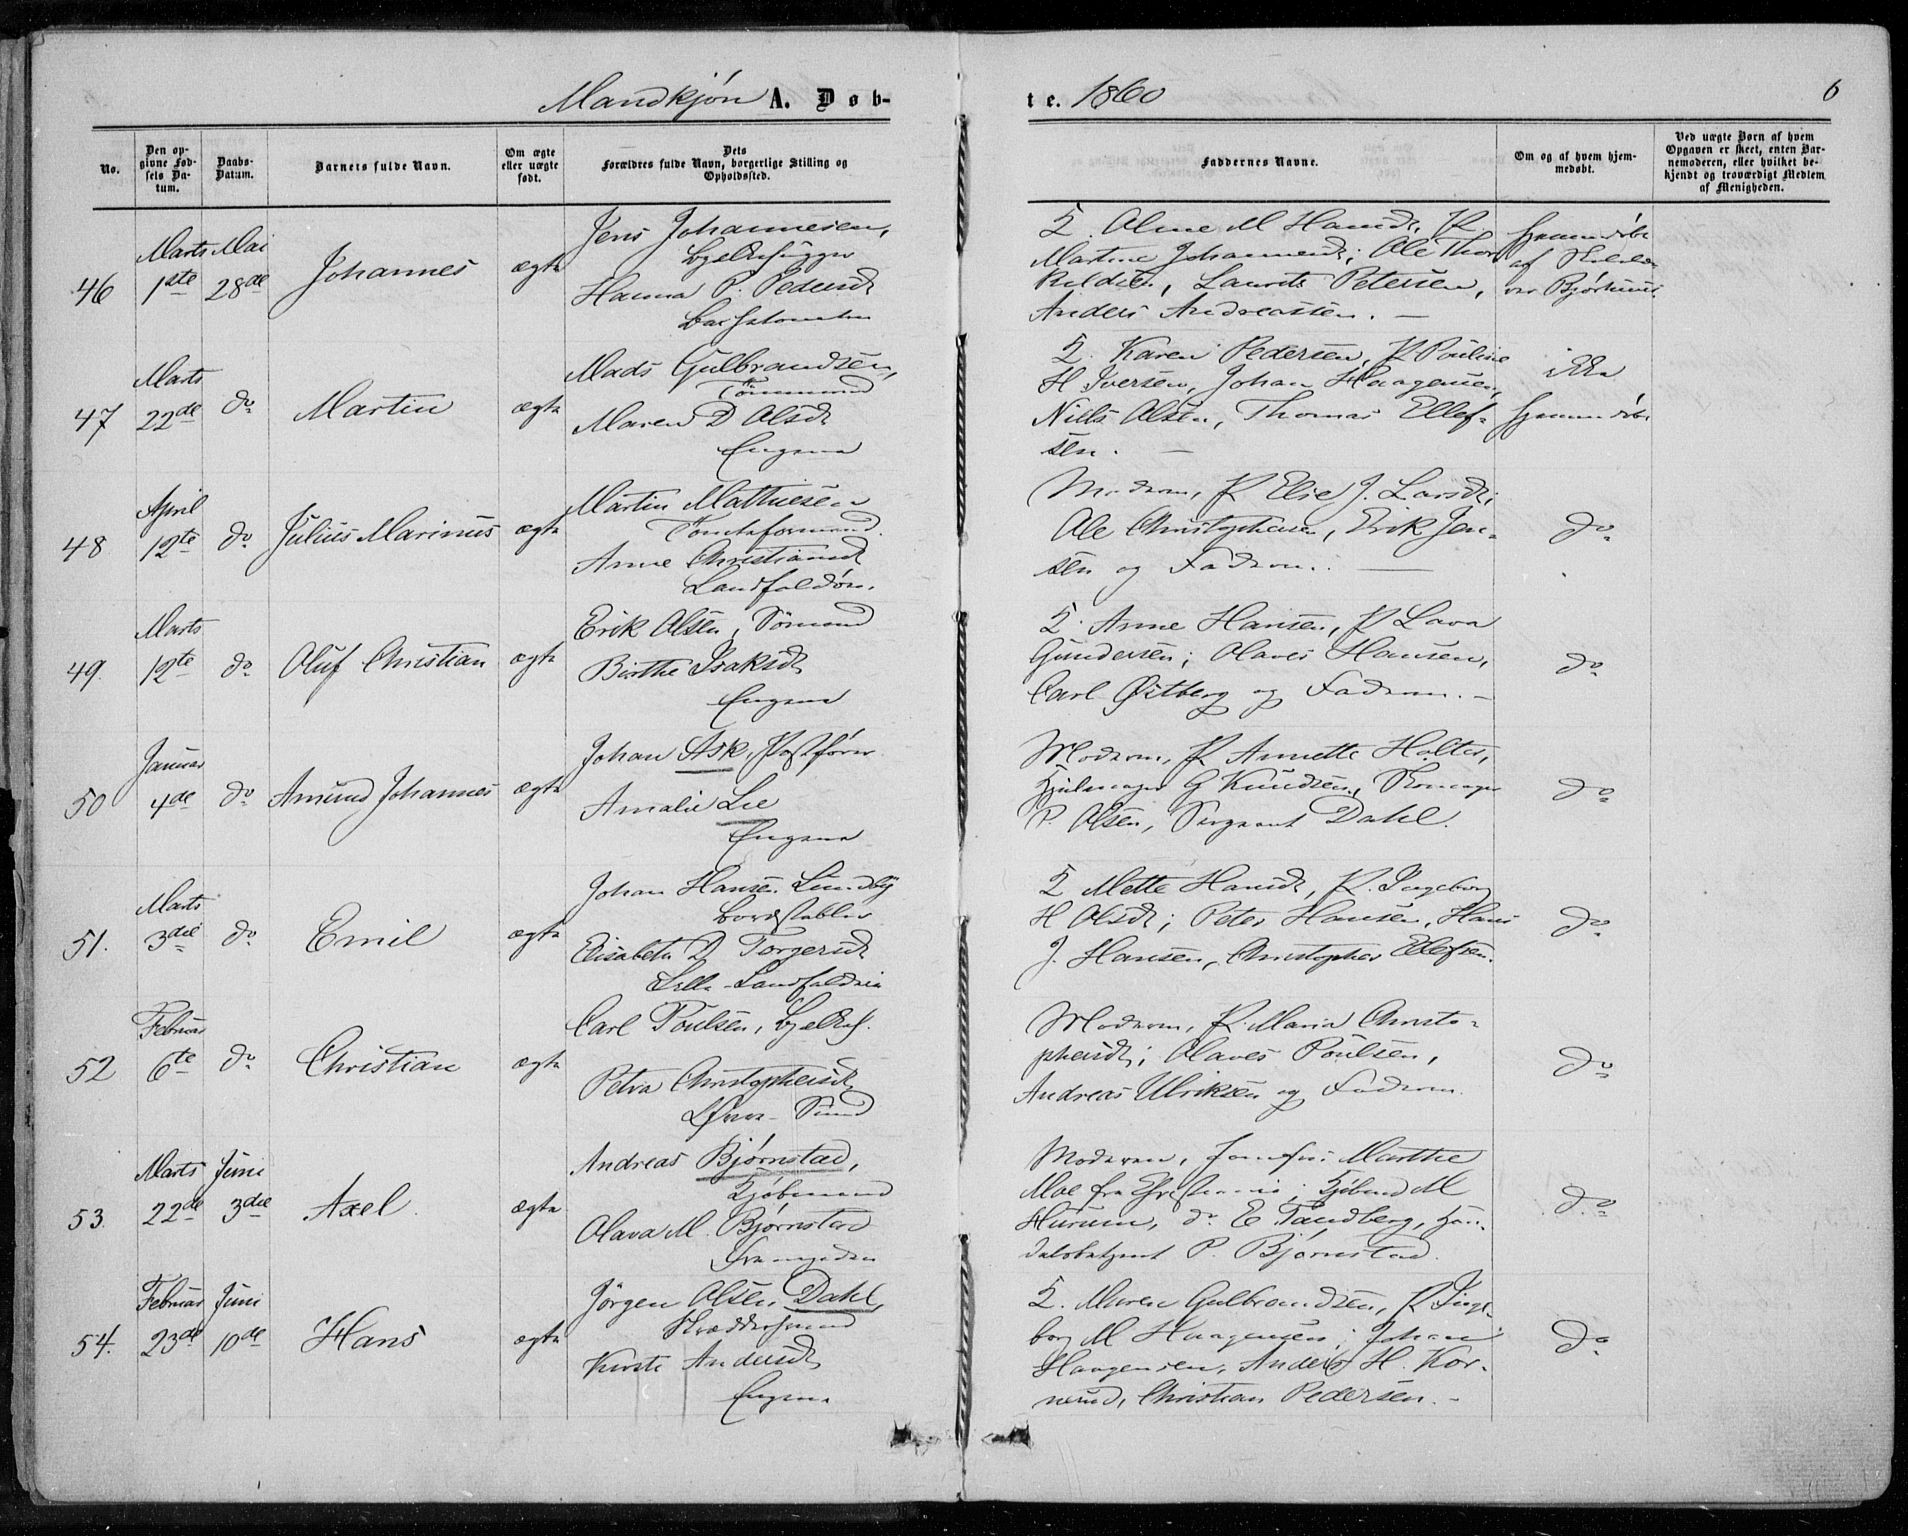 Mandkjøn A. Døb-
te. 1860
6
No.
Den opgivne Fødsels Datum.
Daabs-Datum.
Barnets fulde Navn.
Om ægte eller uægte født.
Dets Forældres fulde Navn, borgerlige Stilling og Opholdssted.
Faddernes Navne.
Om og af hvem hjemmedøbt.
Ved uægte Børn af hvem Opgaven er skeet, enten Barnemoderen, eller hvilket bekjendt og troværdigt Medlem af Menigheden.
46
Marts 1ste
Mai 28de
Johannes
ægte
Jens Johannesen,
Bjelkehugger
Hanna P. Pedersdt
M Hansdt, P
Martine Johannesdt; Ole Thor
kildsen, Laurits Petersen,
Anders Andreassen. —
hjemmedøbt
af
47
Marts 22de
do
Martin
ægte
Mads Gulbrandsen,
Tømmermand
Maren D Olsdt
Engene
Karen Pedersen, P Pouline
H Iversen, Johan Haagensen,
Niels Olsen, Thomas Ellef-
sen. —
ikke
hjemmedøbt
48
April 12te
do
Julius Marinus
ægte
Martin Mathiesen
Tomteformand
Anne Christiansdt
Landfaldøen.
Moderen, P Elie J. Larsdt;
Ole Christophersen, Erik Jen-
sen og Faderen. —
do
49.
Marts 12te
do
Oluf Christian
ægte
Erik Olsen, Sømand
Birthe Isaksdt
Engene
Anne Hansen, P Lava
Gundersen; Olaves Hansen,
Carl Østberg og Faderen. —
do
50
Januar 4de
do
Amund Johannes
ægte
Johan Ask, Postfører
Amalie Lie
Engene
Moderen, P Annette Holter,
Hjulmager G Knudsen, Skomager
P. Olsen, Sergeant Dahl.
do
51.
Marts 3die
do
Emil
ægte
Johan Hansen Lundby
Bordstabler
Elisabeth D Torgersdt
Lille Landfaldøen
Mette Hansdt, P. Ingeborg
H Olsdt; Peter Hansen, Hans
J. Hansen, Christopher Ellefsen.
do
52
Februar 6te
do
Christian
ægte
Carl Poulsen, Bjelkeh.
Petra Christophersdt
Øvre Sund
Moderen, P. Maria Christo-
phersdt; Olaves Poulsen,
Andreas Ulriksen og Faderen.
do
53.
Marts 22de
Juni 3die
Axel.
ægte
Andreas Bjørnstad,
Kjøbmand
Olava M. Bjørnstad
Moderen, Jomfru Marthe
Moe fra Christiania; Kjøbmd M
Hurum, do E Tandberg, Han-
delsbetjent P. Bjørnstad.
do
54.
Februar 23de
Juni 10de
Hans
ægte
Jørgen Olsen Dahl,
Skræddersvend
Kirste Andersdt
Engene
Maren Gulbrandsen, P Inge-
borg M Haagensen; Johan
Haagensen, Anders H. Kor-
nerud, Christian Pedersen. —
do